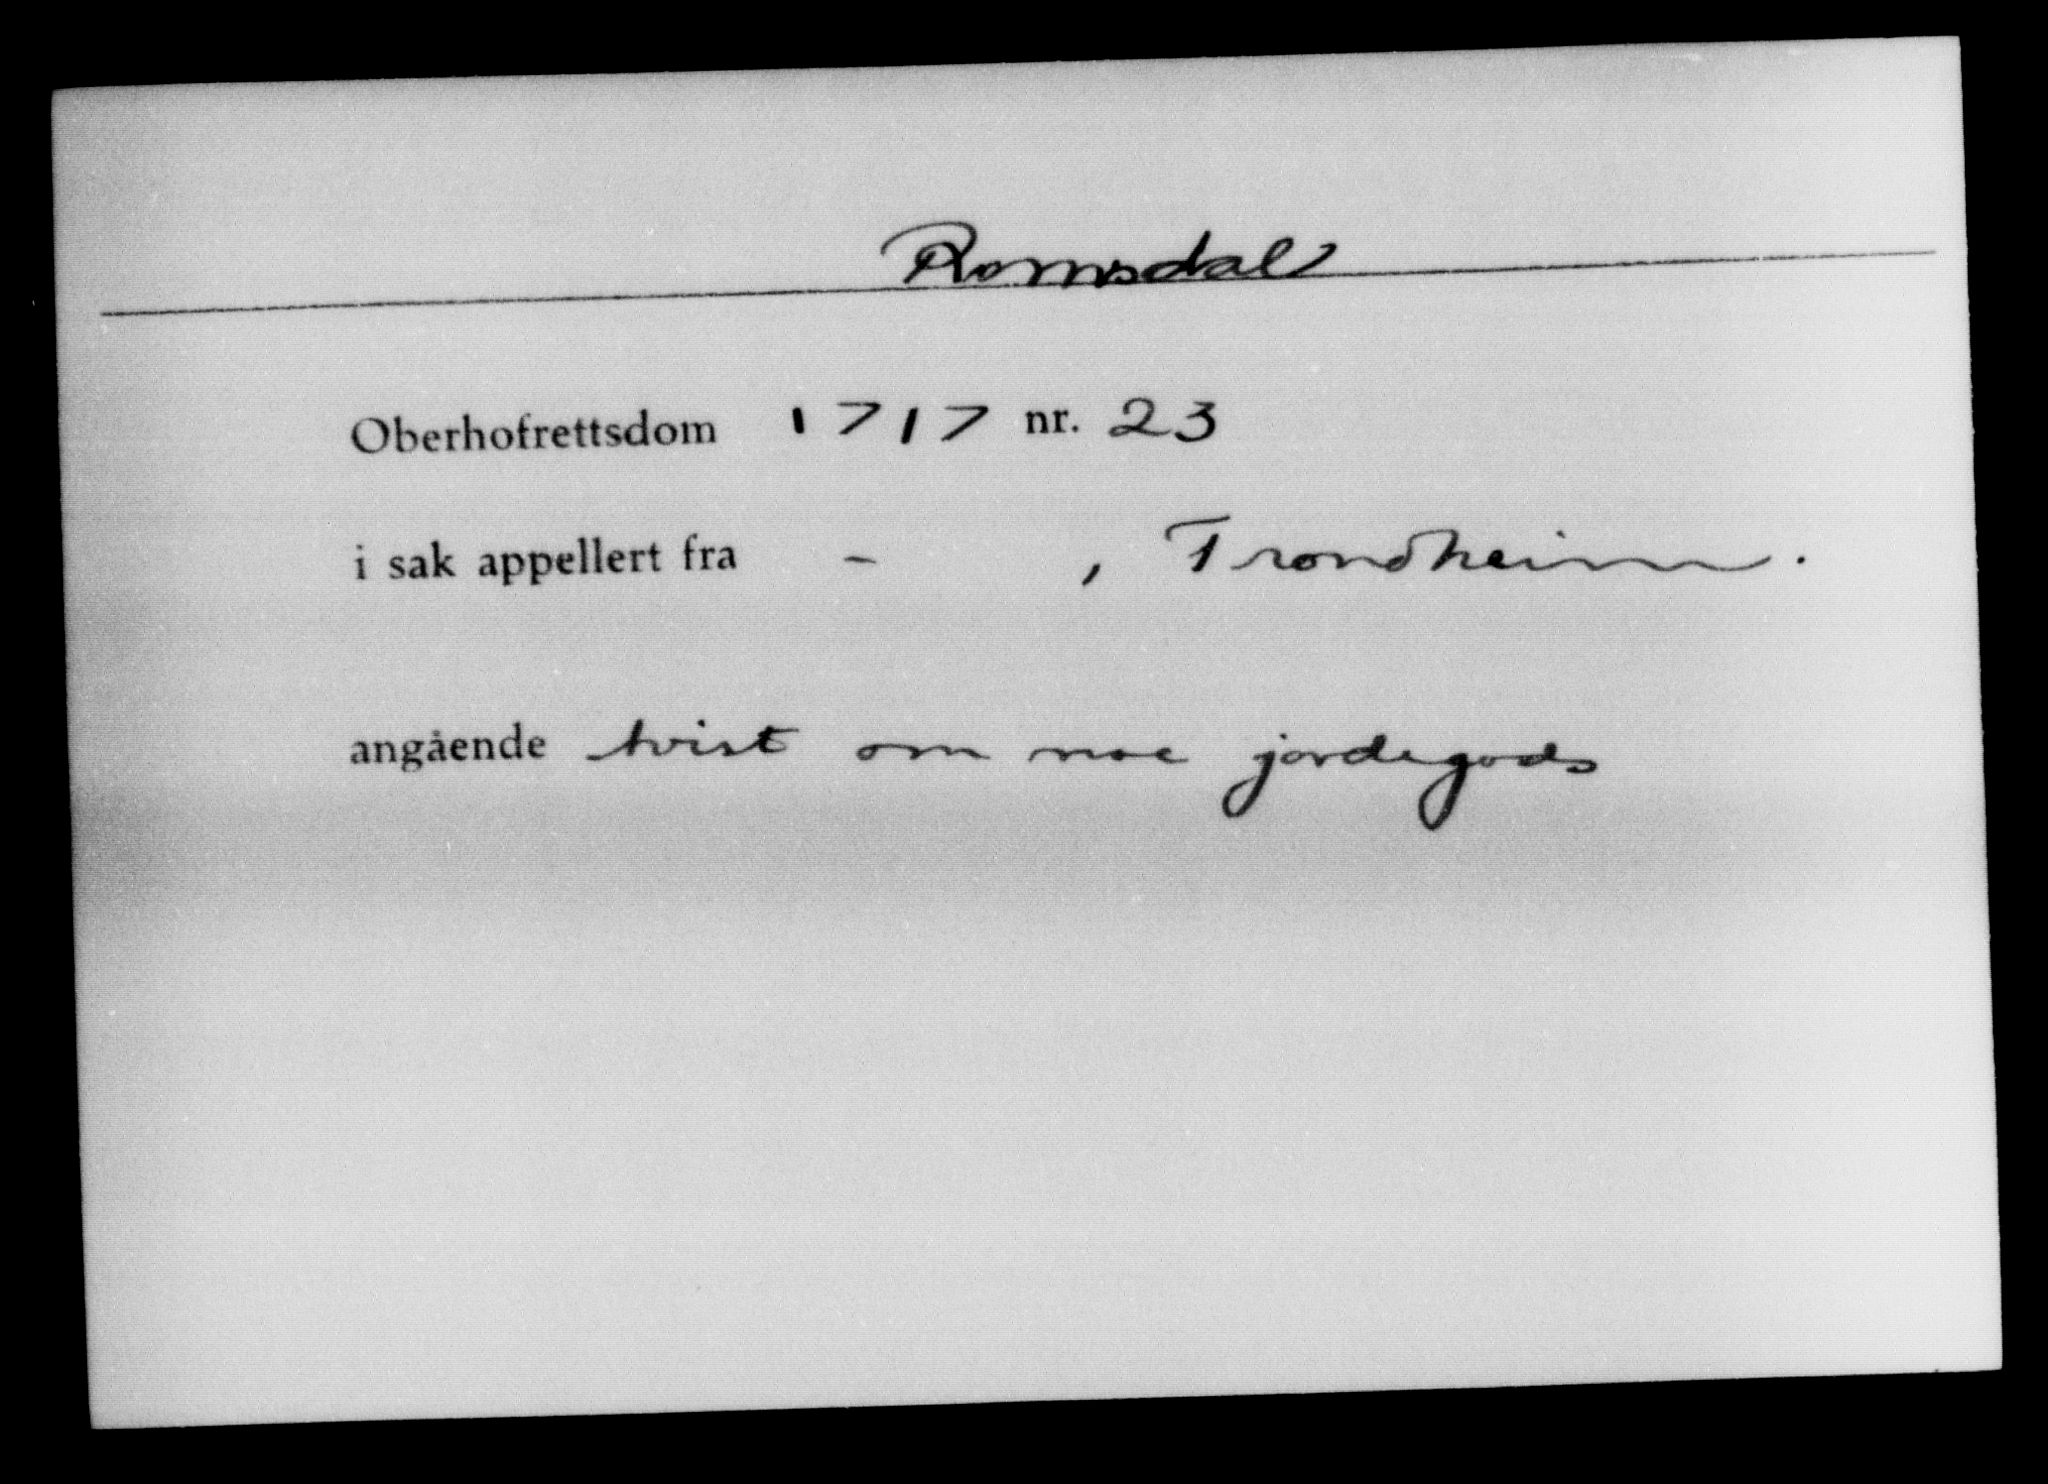 Romsdal
Oberhofrettsdom 1717 nr. 23
i sak appellert fra - , Trondheim.
angående tvist om noe jordegods